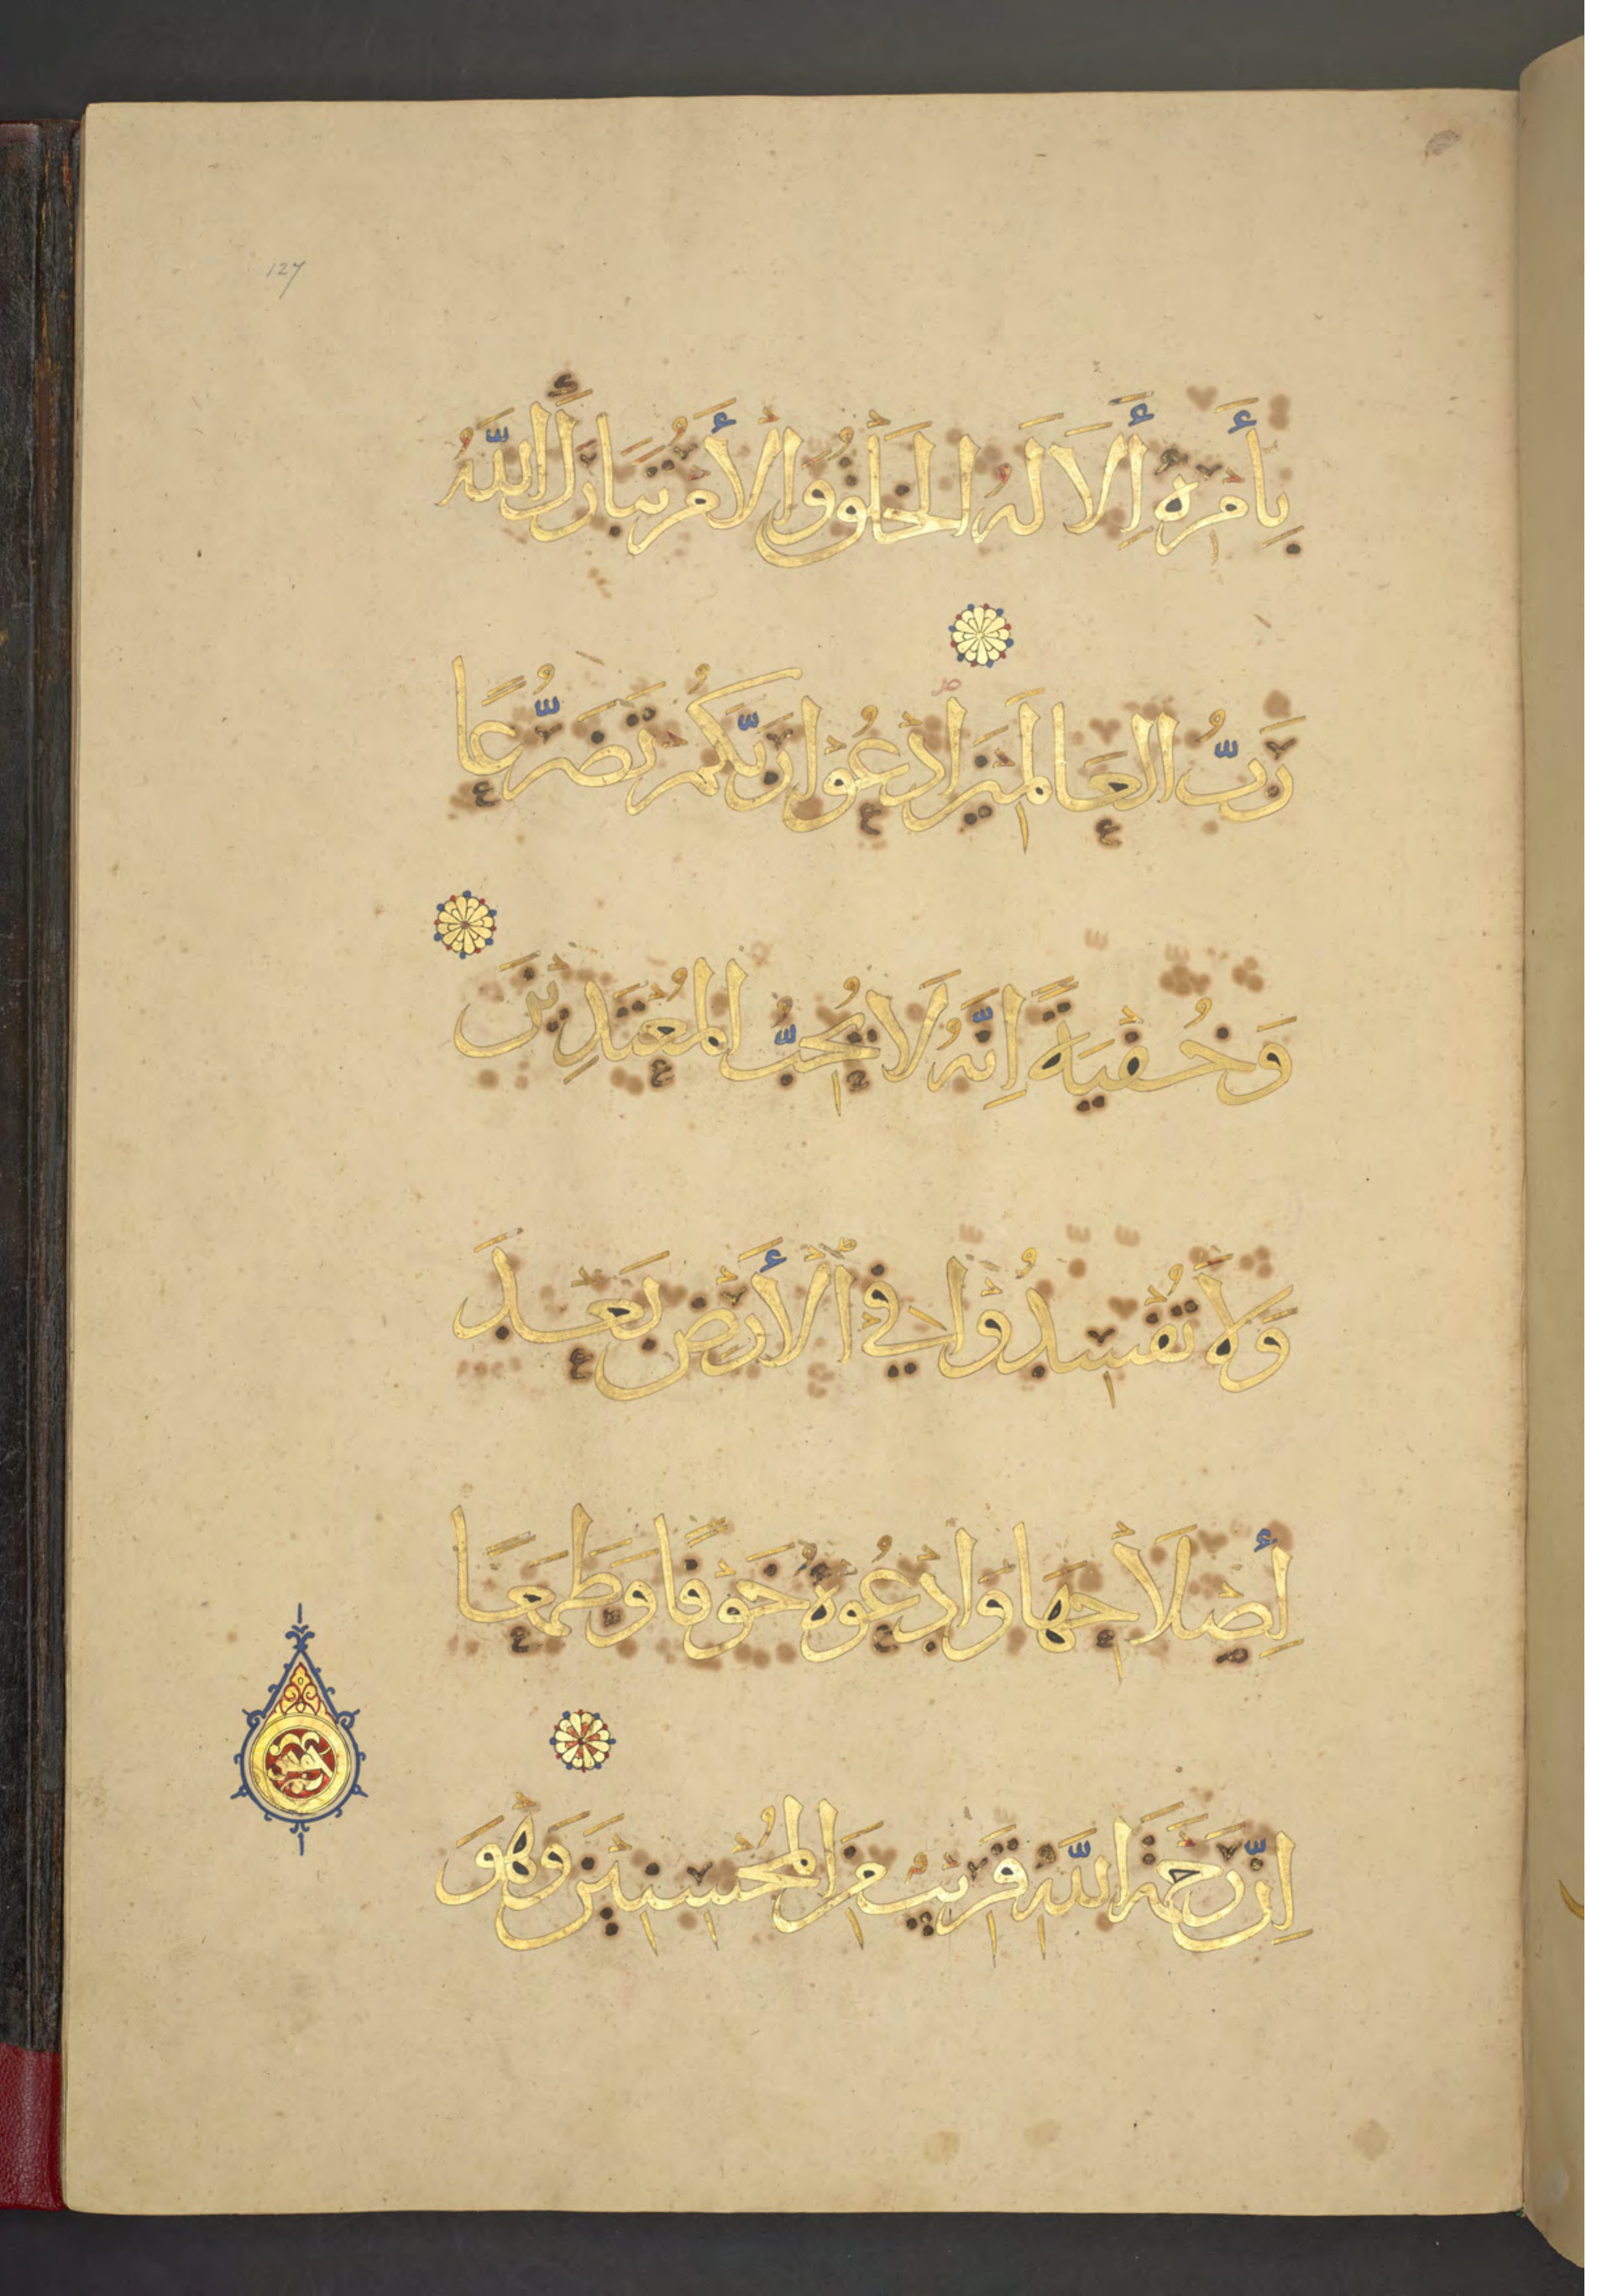 127
بِأَمْرِهِ أَلَا لَهُ الْخَلْقُ وَالْأَمْرُ تَبَارَكَ اللَّهُ
رَبُّ الْعَالَمِيْنَ ادْعُوْا رَبَّكُمْ تَضَرُّعًا
وَخُفْيَةً إِنَّهُ لَا يُحِبُّ الْمُعْتَدِيْنَ
وَلَا تُفْسِدُوْا فِي الْأَرْضِ بَعْدَ
إِصْلَاحِهَا وَادْعُوْهُ خَوْفًا وَطَمَعًا
إِنَّ رَحْمَةَ اللَّهِ قَرِيْبٌ مِنَ الْمُحْسِنِيْنَ وَهُوَ